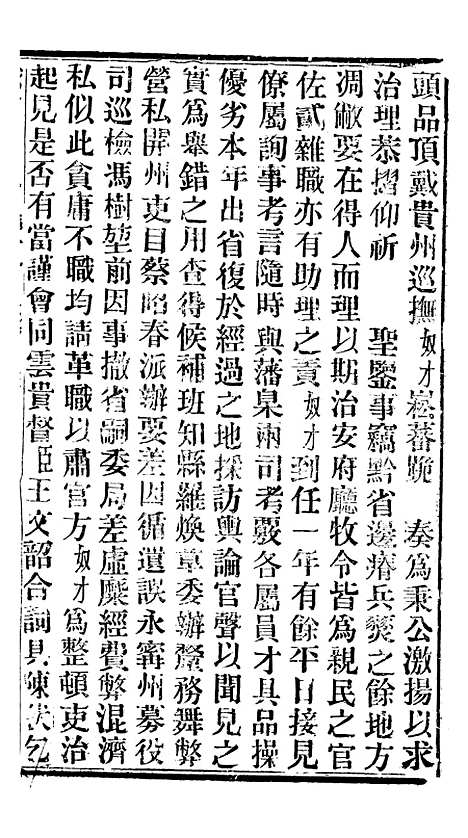 頭品頂戴貴州巡撫奴才崧蕃跪　奏為秉公激揚以求
治理恭摺仰祈　聖鑒事竊黔省邊瘠兵燹之餘地方
凋敝要在得人而理以期治安府廳牧令皆為親民之官
佐貳雜職亦有助理之責奴才到任一年有餘平日接見
僚屬詢事考言隨時與藩臬兩司考覈各屬員才具品操
優劣本年出省復於經過之地採訪輿論官聲以聞見之
實為舉錯之用查得候補班知縣羅煥章委辦釐務舞弊
營私開州吏目蔡昭春派辦要差因循遺誤永寧州募役
司巡檢馮樹堃前因事撤省嗣委局差虛糜經費弊混濟
私似此貪庸不職均請革職以肅官方奴才為整頓吏治
起見是否有當謹會同雲貴督臣王文韶合詞具陳伏乞